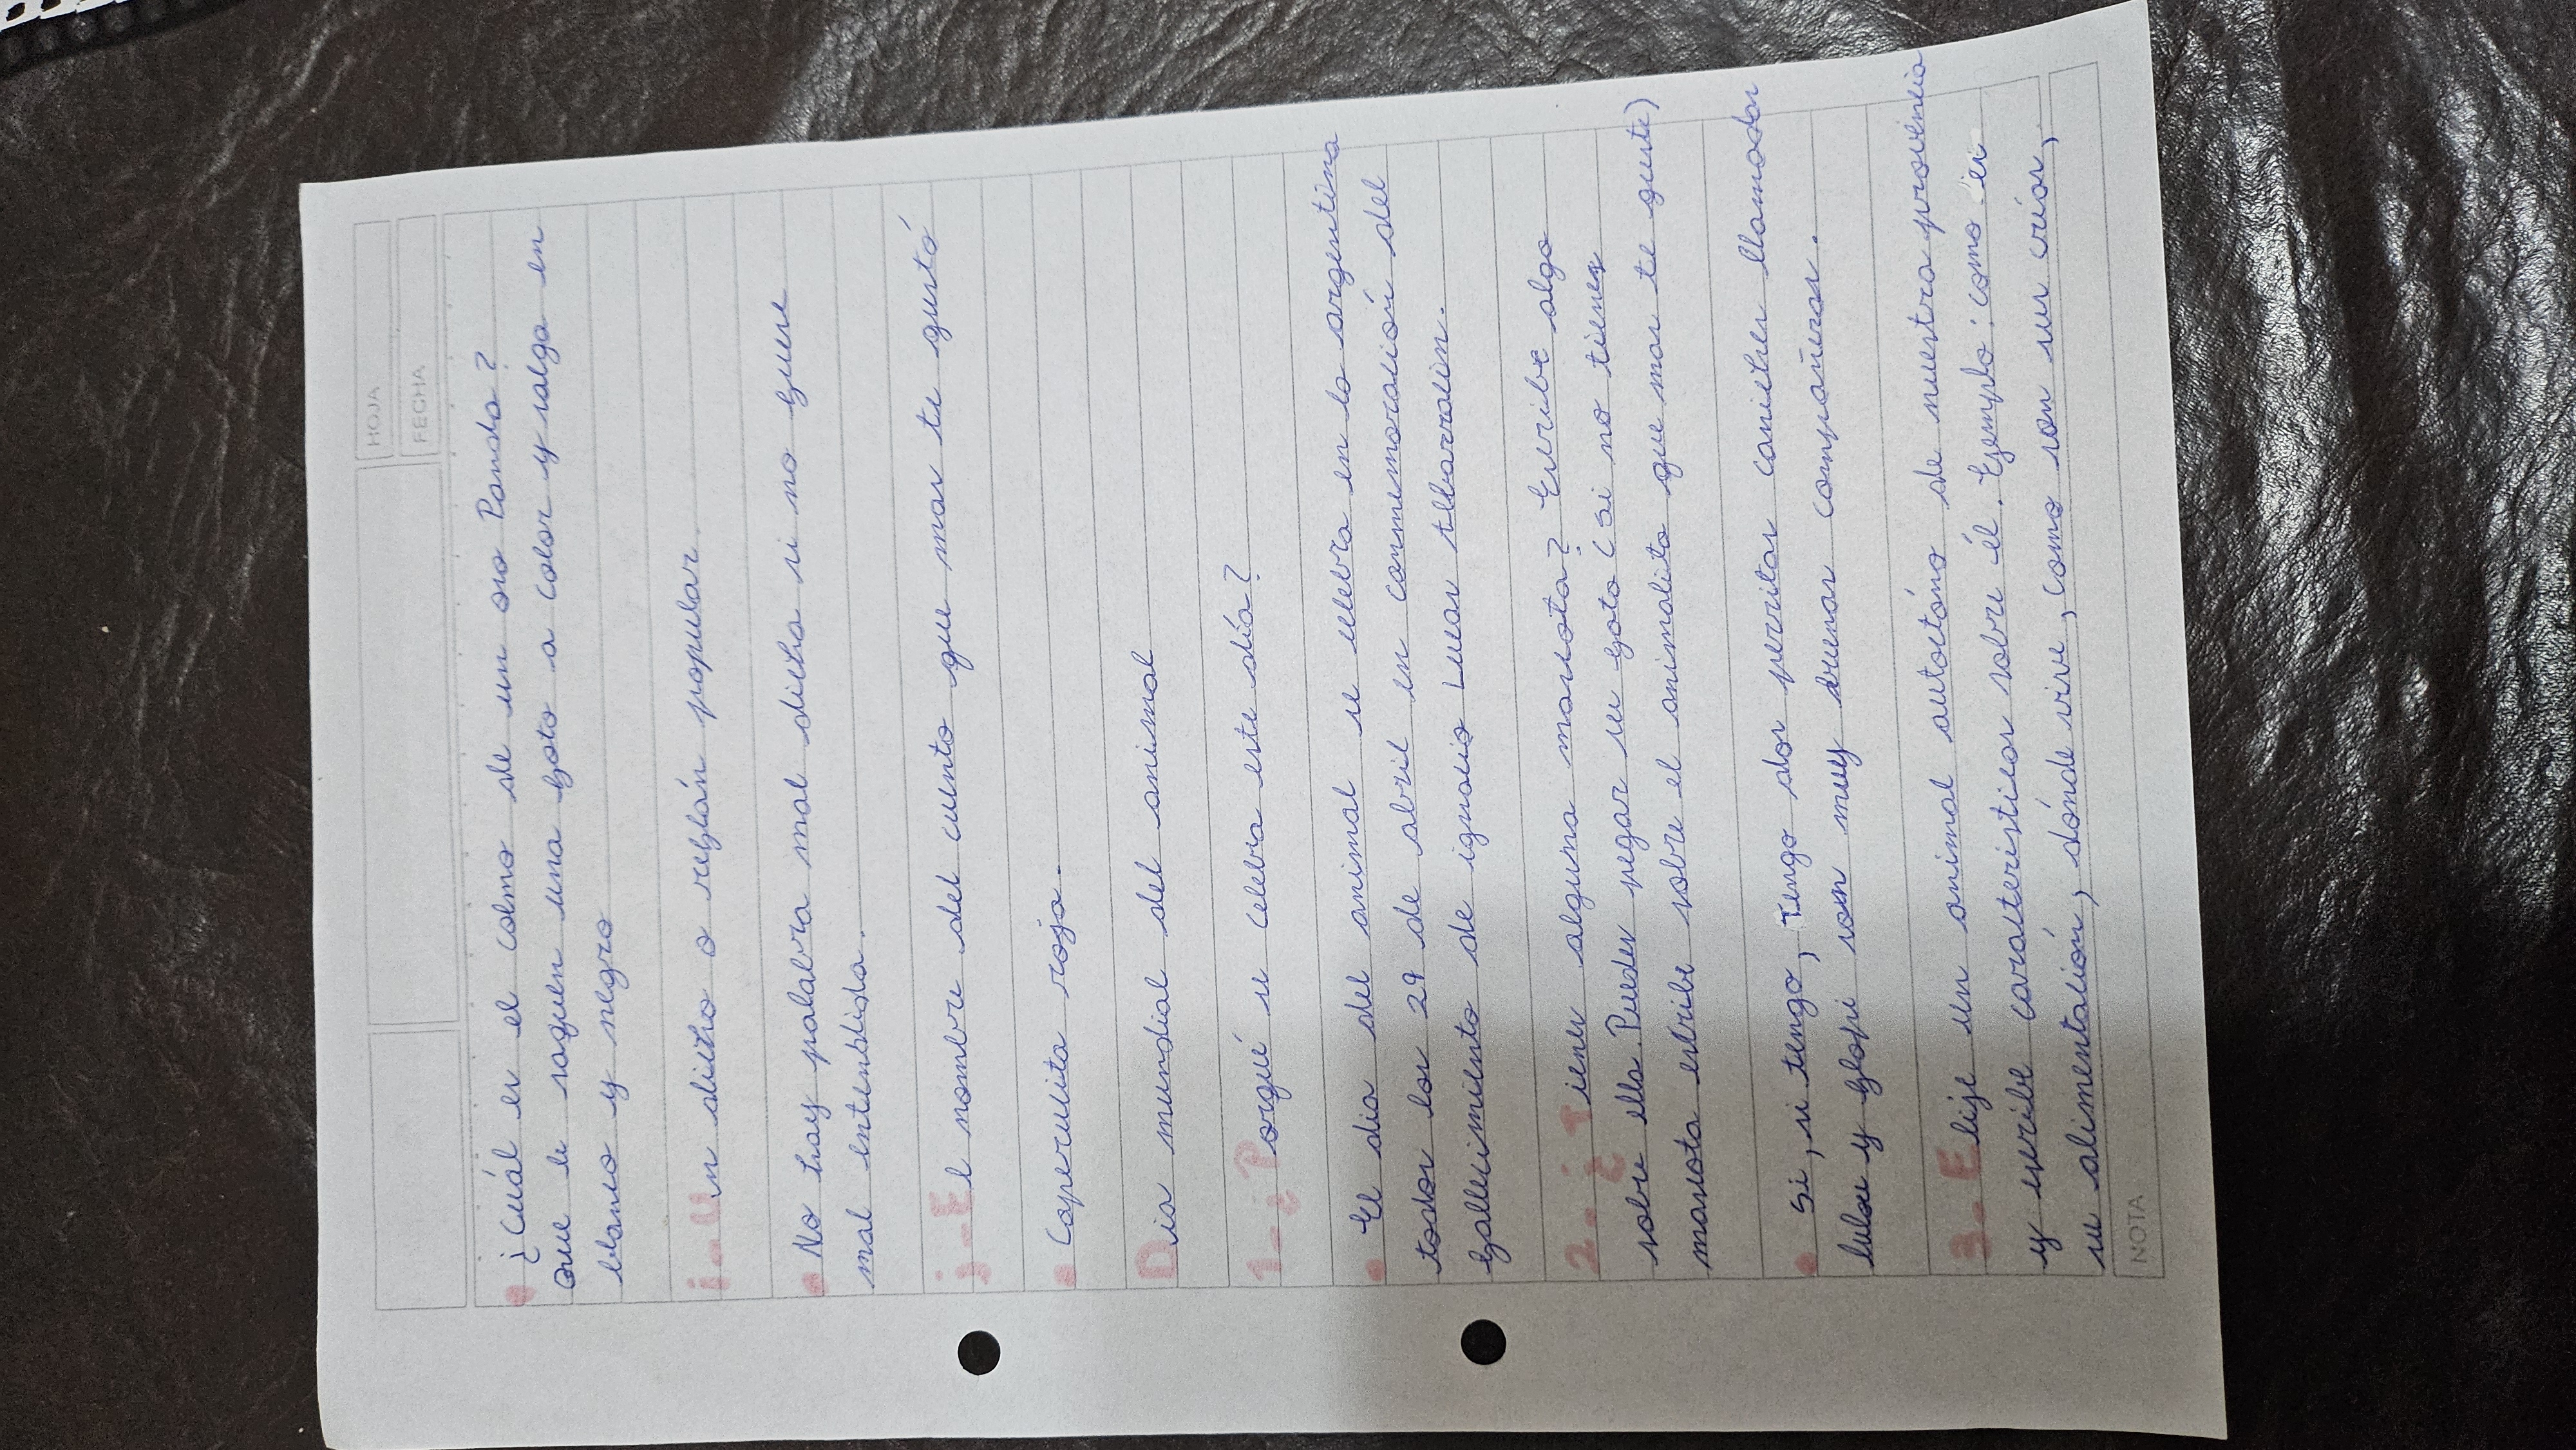 HOJA
FECHA
• ¿Cuál es el colmo de un oso Panda?
Que le saquen una foto a color y salga en
blanco y negro
i-Un dicho o refrán popular.
• No hay palabra mal dicha si no fuese
mal entendida.
j-El nombre del cuento que mas te gustó
• Caperucita roja.
Dia mundial del animal
1-¿Porqué se celebra este día?
• El dia del animal se celebra en la argentina
todos los 29 de abril en conmemoración del
fallecimiento de ignacio Lucas Albarracin.
2-¿Tienes alguna mascota? Escribe algo
sobre ella. Puedes pegar su foto (si no tienes
mascota escribe sobre el animalito que mas te guste)
• Si, si tengo, Tengo dos perritas caniches llamadas
lulu y flopi son muy buenas compañeras.
3-Elije un animal autoctóno de nuestra provincia
y escribe caracteristicas sobre él. Ejemplo: como es
su alimentación, dónde vive, como son sus crías,
NOTA